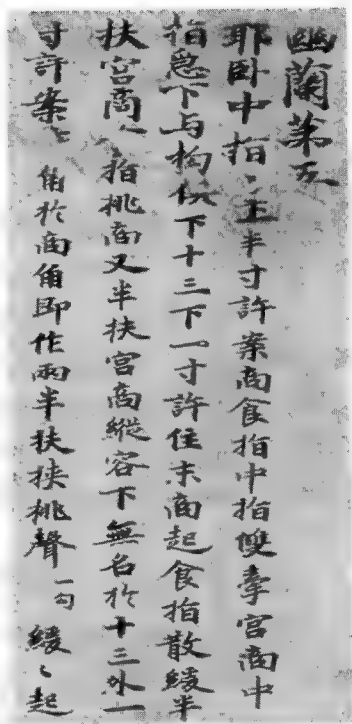 幽蘭苐五
耶卧中指〻上半寸許案商食指中指雙牽宮商中
指急下与拘俱下十三下一寸許住末商起食指散緩半
扶宮商〻〻指挑商又半扶宮商縱容下無名於十三外一
寸許案〻角於商角即作兩半扶挾挑聲一句緩〻起